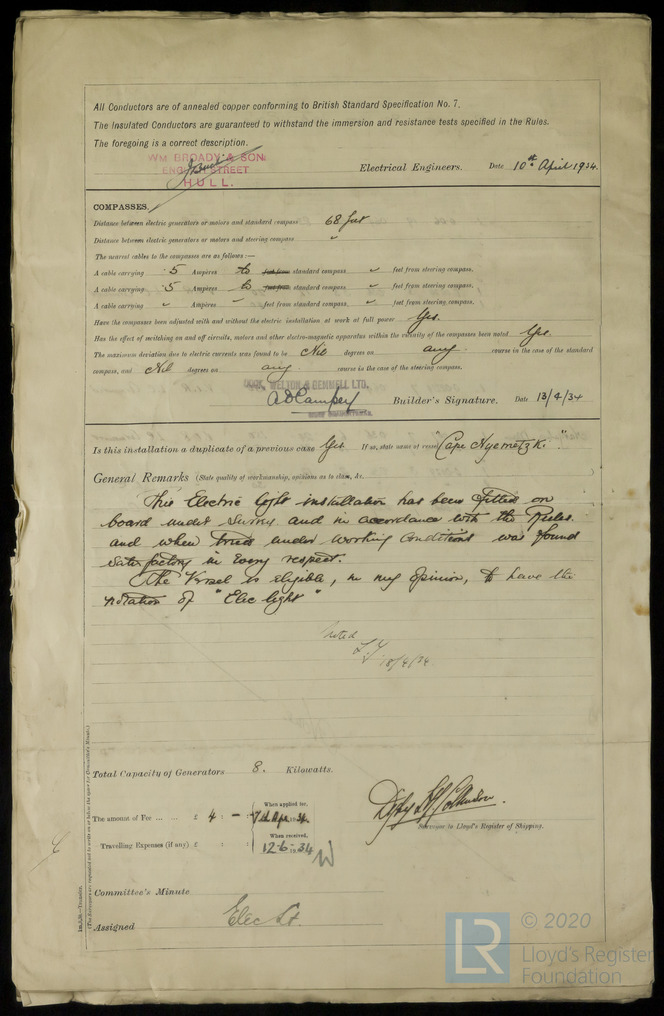 All Conductors are of annealed copper conforming to British Standard Specification No. 7.
The Insulated Conductors are guaranteed to withstand the immersion and resistance tests specified in the Rules.
The foregoing is a correct description.
WM BROADY & SON
STREET
HULL.
Electrical Engineers. Date 10th April 1934.
COMPASSES.
Distance between electric generators or motors and standard compass 68 feet
Distance between electric generators or motors and steering compass "
The nearest cables to the compasses are as follows :—
A cable carrying .5 Ampères to standard compass " feet from steering compass.
A cable carrying .5 Ampères to standard compass " feet from steering compass.
A cable carrying " Ampères " feet from standard compass, " feet from steering compass.
Have the compasses been adjusted with and without the electric installation at work at full power Yes.
Has the effect of switching on and off circuits, motors and other electro-magnetic apparatus within the vicinity of the compasses been noted Yes.
The maximum deviation due to electric currents was found to be Nil degrees on any course in the case of the standard
compass, and Nil degrees on any course in the case of the steering compass.
COOK, WELTON & GEMMELL LTD.
Builder's Signature. Date 13/4/34
Is this installation a duplicate of a previous case Yes If so, state name of vessel "Cape Nyemetzki"
General Remarks (State quality of workmanship, opinions as to class, &c.
This Electric light installation has been fitted on
board under Survey and in accordance with the Rules
and when tried under working conditions was found
satisfactory in every respect.
The Vessel is eligible, in my opinion, to have the
notation of "Elec light"
Noted
18/4/34
Total Capacity of Generators 8. Kilowatts.
The amount of Fee ... ... £ 4 : — :
When applied for,
Apr. 34
Travelling Expenses (if any) £ : :
When received,
12.6.1934
Surveyor to Lloyd's Register of Shipping.
Committee's Minute
Assigned Elec Lt.
LR
© 2020
Lloyd's Register
Foundation